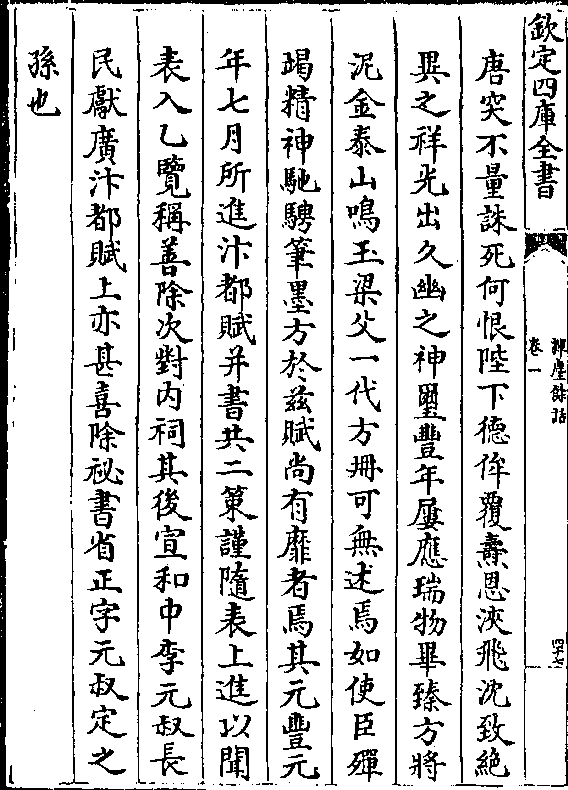 欽定四庫全書
揮麈餘話
卷一
四十七
唐突不量誅死何恨陛下德侔覆燾恩浹飛沈致絶
異之祥光出久幽之神璽豐年屢應瑞物畢臻方將
泥金泰山鳴玉梁父一代方冊可無述焉如使臣殫
竭精神馳騁筆墨方於兹賦尚有靡者焉其元豐元
年七月所進汴都賦并書共二策謹隨表上進以聞
表入乙覽稱善除次對内祠其後宣和中李元叔長
民獻廣汴都賦上亦甚喜除祕書省正字元叔定之
孫也